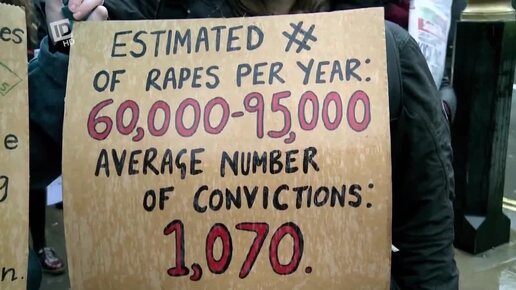 ESTIMATED #
OF RAPES PER YEAR:
60,000-95,000
AVERAGE NUMBER
OF CONVICTIONS:
1,070.
ID
HD
es
e
g
n.